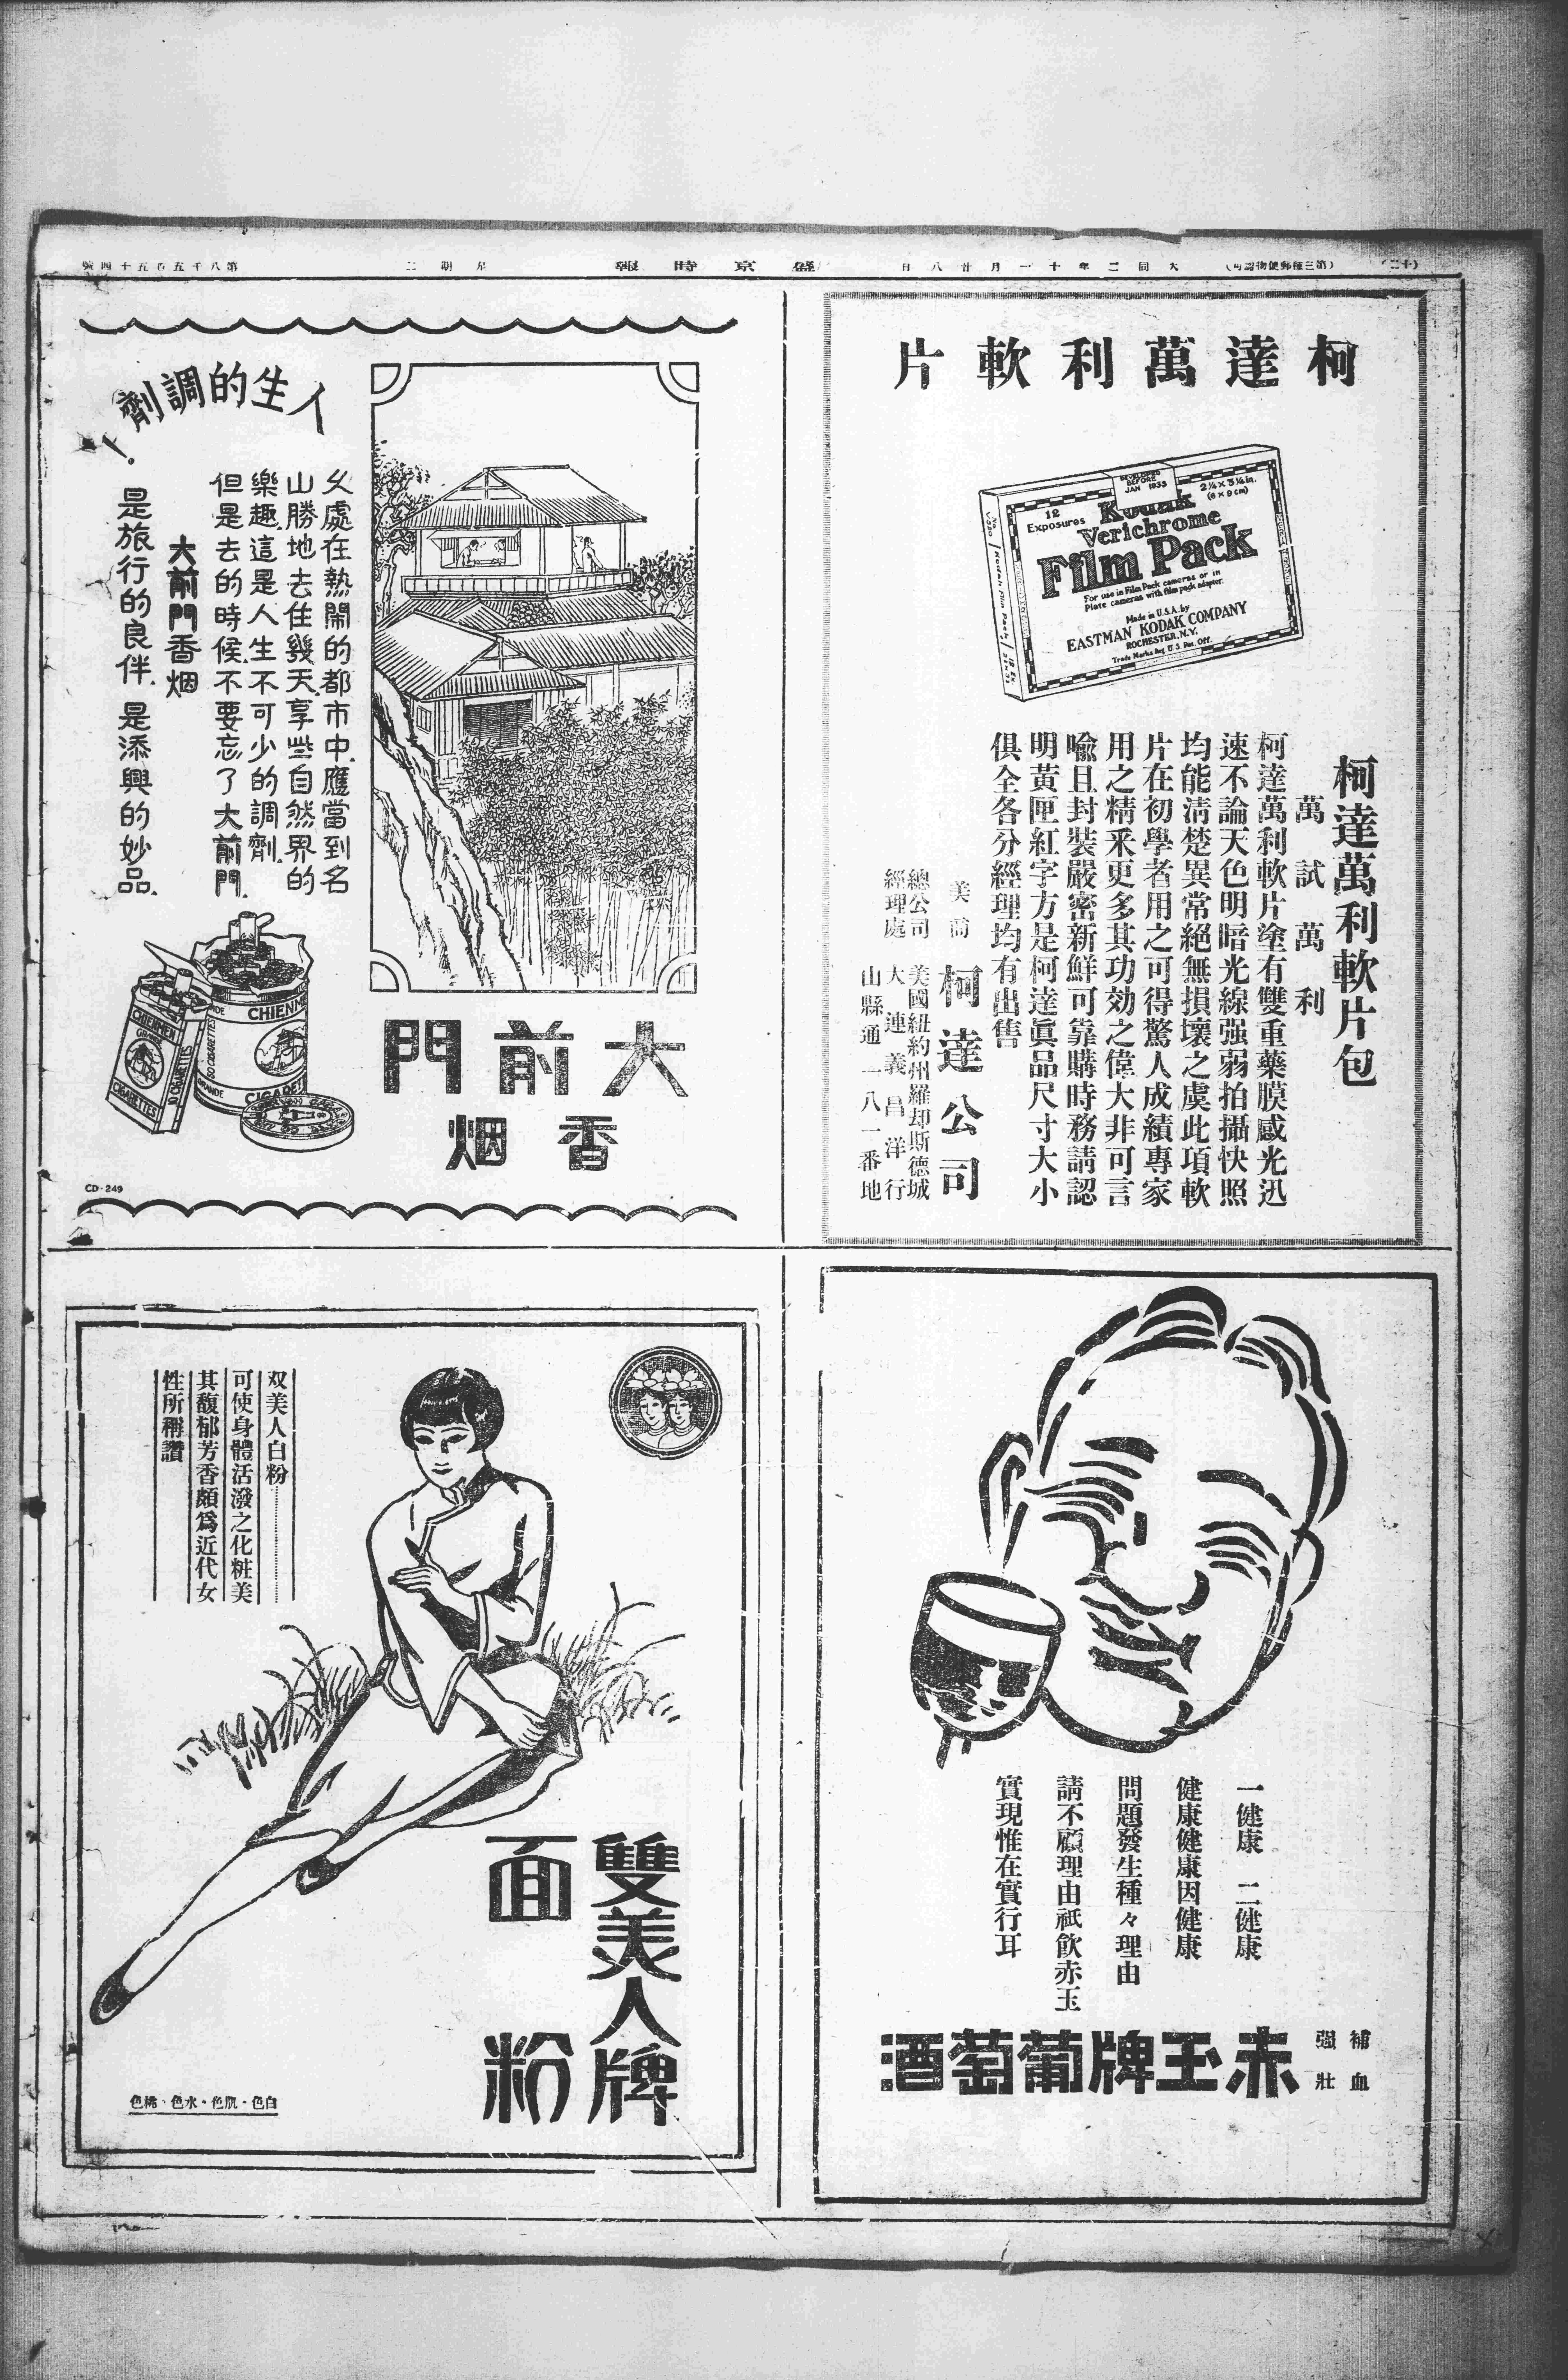 (十二)
(第三種郵便物認可)
大同二年十一月廿八日
盛京時報
星期二
第八千五百五十四號
柯達萬利軟片
DEVELOPED BEFORE JAN 1933
2¼ x 3¼ in.
(6 x 9 cm)
12
Exposures
Kodak
Verichrome
Film Pack
For use in Film Pack cameras or in
Plate cameras with film pack adapter.
Made in U.S.A. by
EASTMAN KODAK COMPANY
ROCHESTER, N.Y.
Trade Marks Reg. U.S. Pat. Off.
柯達萬利軟片包
萬試萬利
柯達萬利軟片塗有雙重藥膜感光迅
速不論天色明暗光線强弱拍攝快照
均能清楚異常絕無損壞之虞此項軟
片在初學者用之可得驚人成績專家
用之精釆更多其功効之偉大非可言
喩且封裝嚴密新鮮可靠購時務請認
明黃匣紅字方是柯達眞品尺寸大小
俱全各分經理均有出售
美商
柯達公司
總公司 美國紐約州羅却斯德城
經理處 大連義昌洋行
山縣通一八一番地
人生的調劑!
久處在熱鬧的都市中、應當到名
山勝地去住幾天、享些自然界的
樂趣、這是人生不可少的調劑、
但是去的時候、不要忘了大前門、
大前門香烟
是旅行的良伴、是添興的妙品、
CHIENMEN
GRANDE
CIGARETTES
10 CIGARETTES
CHIENM
50 CIGARETTES
GRANDE
CIGARET
大前門
香烟
CD-249
一健康 二健康
健康健康因健康
問題發生種々理由
請不顧理由祇飲赤玉
實現惟在實行耳
補血
强壯
赤玉牌葡萄酒
双美人白粉………
可使身體活潑之化粧美
其馥郁芳香頗爲近代女
性所稱讚
雙美人牌
面粉
白色・肌色・水色・桃色